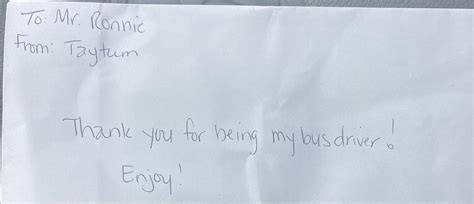 To: Mr. Ronnie
From: Taytum
Thank you for being my bus driver!
Enjoy!